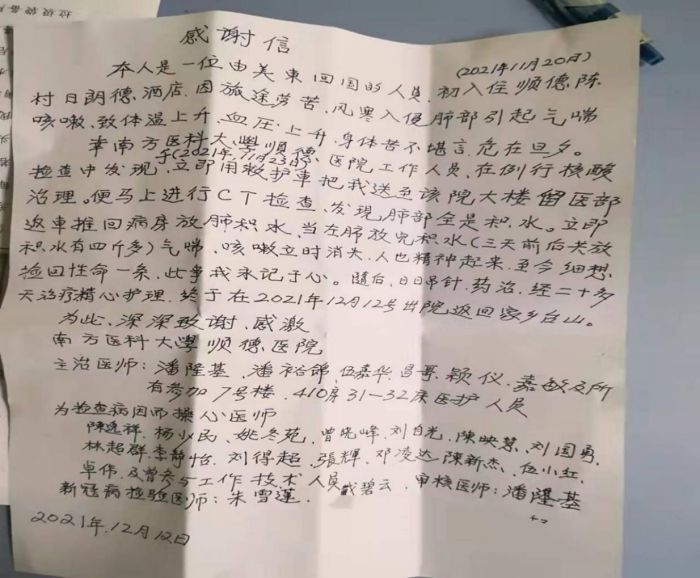 感谢信
(2021年11月20日)
本人是一位由美东回国的人员,初入住顺德陈
村日朗德酒店,因旅途劳苦,风寒入侵肺部引起气喘
咳嗽,致体温上升,血压上升,身体苦不堪言,危在旦夕。
幸南方医科大學顺德医院工作人员,在例行核酸
于(2021年11月23日)
检查中发现,立即用救护車把我送至该院大楼留医部
治理。便马上进行CT检查,发现肺部全是积水。立即
返車推回病房放肺积水,当左肺放完积水(三天前后共放
积水有四斤多)气喘,咳嗽立时消失,人也精神起来,至今细想,
捡回性命一条,此事我永记于心。随后,日日吊针,药治,经二十多
天治疗精心护理,终于在2021年12月12号出院返回家乡台山。
为此,深深致谢,感激
南方医科大學顺德医院
主治医师:潘隆基、潘裕锦、伍嘉华、 颖仪、嘉敏及所
有参加7号楼,410房31-32床医护人员
为检查病因而操心医师
陳逸祥、杨以民、姚冬苑、曾晓峰、刘自光、陳映慧、刘国勇、
林超群、李静怡、刘得超、張輝、邓凌达、陳新杰、伍小红、
卓伟、及曾参与工作技术人员、戴碧云、审核医师:潘隆基
新冠病检验医师:朱雪莲、
2021年.12月12日